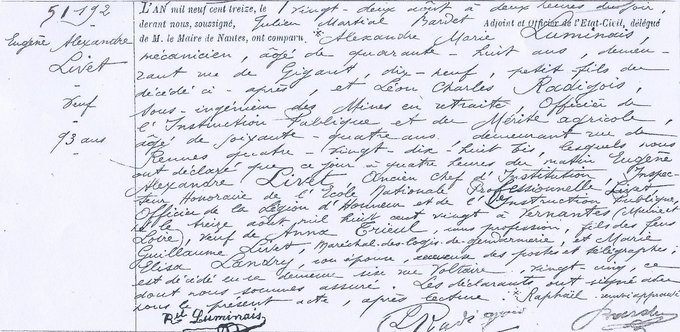 51-192
Eugène Alexandre
Livet
Veuf
93 ans
L'AN mil neuf cent treize, le vingt-deux août à deux heures du soir,
devant nous, soussigné, Julien Martial Bardet Adjoint et Officier de l'Etat-Civil, délégué
de M. le Maire de Nantes, ont comparu Alexandre Marie Luminais,
mécanicien, âgé de quarante-huit ans, demeu-
rant rue de Gigant, dix-neuf, petit-fils du
décédé ci-après, et Léon Charles Radigois,
sous-ingénieur des Mines en retraite, Officier de
l'Instruction Publique et du Mérite agricole,
âgé de soixante-quatre ans demeurant rue de
Rennes quatre-vingt-dix-huit bis, lesquels nous
ont déclaré que ce jour à quatre heures du matin Eugène
Alexandre LIVET Ancien Chef d'Institution, Inspec-
teur Honoraire de l'Ecole Nationale Professionnelle Livet
Officier de la Légion d'Honneur et de l'Instruction Publique,
né le treize août mil huit cent vingt à Vernantes (Maine et
Loire), veuf de Anna Trieul, sans profession, fils des feus
Guillaume Livet, Maréchal-des-logis de gendarmerie, et Marie
Elisa Landry, son épouse, des postes et télégraphes;
est décédé en sa demeure sise rue Voltaire vingt cinq, ce
dont nous sommes assuré. Les déclarants ont signé avec
nous le présent acte, après lecture. Raphaël aussi approuvé
Rl Luminais L Radigois Bardet